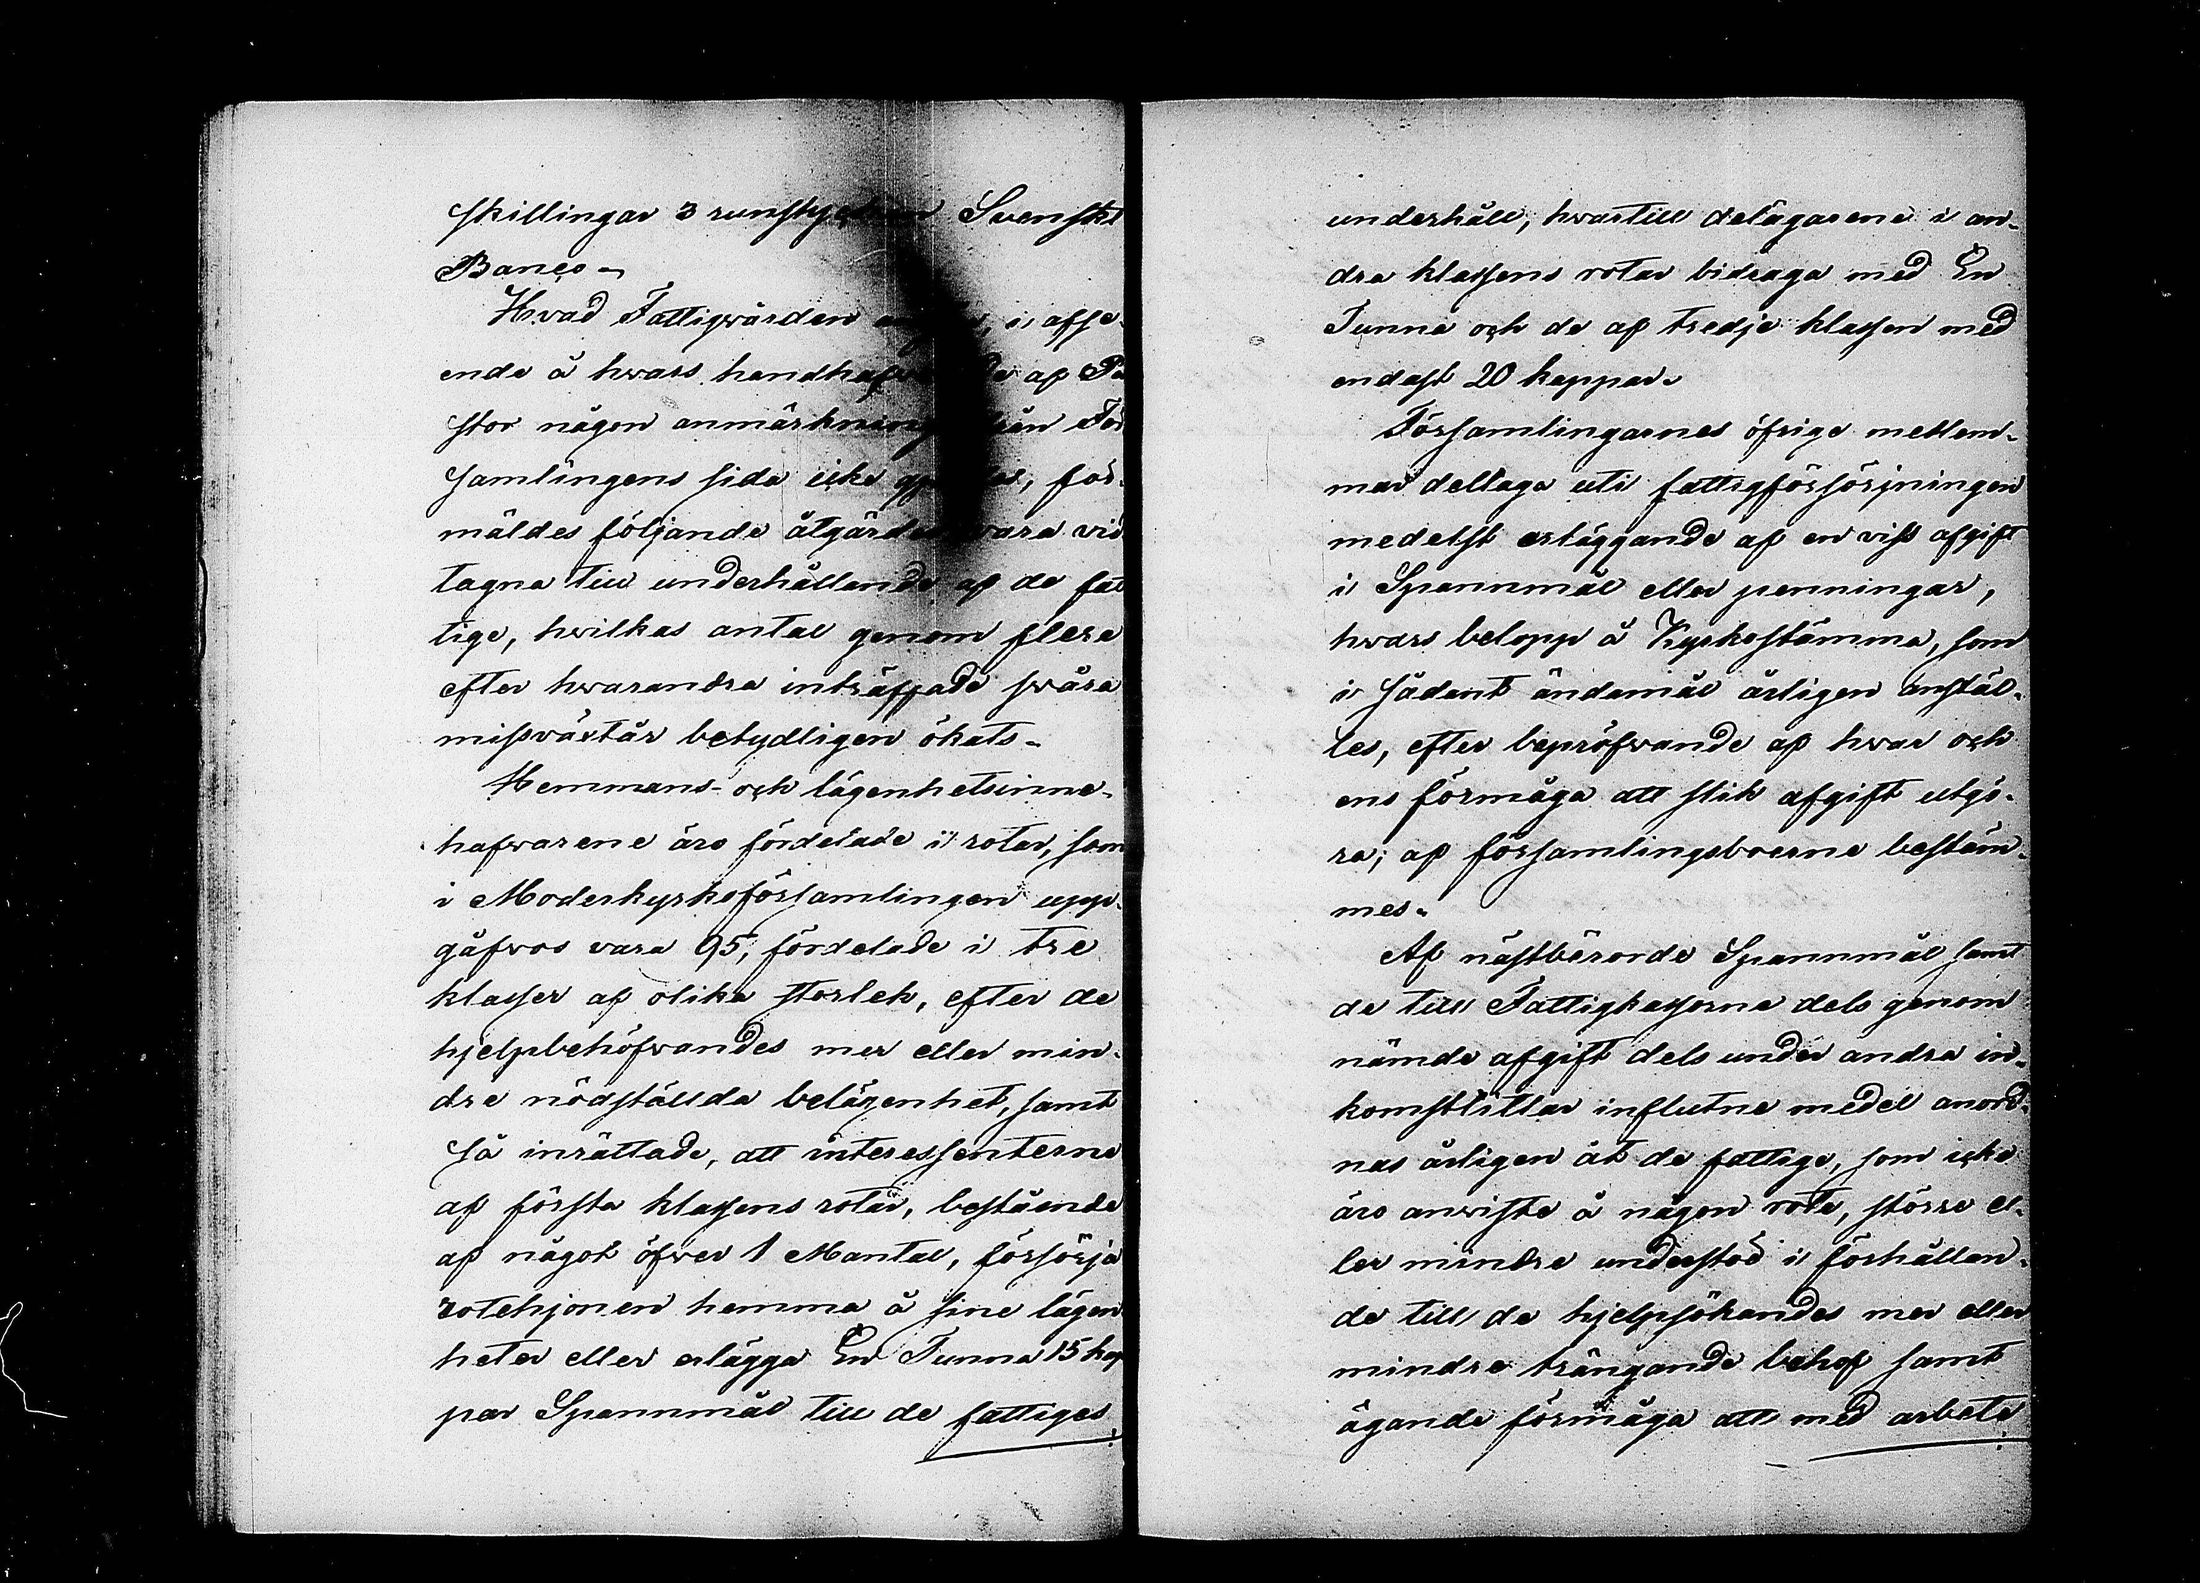 skillingar 3 runstycken Svenskt
Banco.
Hvad Fattigvården i afse-
ende å hwars handhafwande af Pa
stor någon anmärkning från För
samlingens sida icke gjordes, för-
mäldes följande åtgärder vara vid
tagna till underhållande af de fat
tige, hwilkas antal genom flera
efter hwarandra inträffade swåra
missväxtår betydligen ökats.
Hemmans- och lägenhetsinne-
hafwarene äro fördelade i rotar, som
i Moderkyrkoförsamlingen upp-
gåfwos vara 95, fördelade i tre
klasser af olika storlek, efter de
hjelpbehöfvandes mer eller min-
dre nödställda belägenhet, samt
så inrättade, att interessenterne
af första klassens rotar, bestående
af något öfwer 1 Mantal, försörja
rotehjonen hemma å sine lägen
heter eller erlägga En Tunna 15 kap
par Spannmål till de fattiges
underhåll, hwartill delägarene i an-
dra klassens rotar bidraga med En
Tunna och de af tredje klassen med
endast 20 kappar.
Församlingarnes öfrige medlem-
mar deltaga uti fattigförsörjningen
medelst erläggande af en viss afgift
i Spannmål eller penningar,
hwars belopp å Kyrkostämma, som
i sådant ändamål årligen anstäl-
les, efter bepröfwande af hwar och
ens förmåga att slik afgift utgö-
ra, af församlingsboerne bestäm-
mes.
Af nästberörde Spannmål samt
de till Fattigkassorna dels genom
nämde afgift dels under andra in-
komsttitlar influtne medel anord-
nas årligen åt de fattige, som icke
äro anwiste å någon rote, större el-
ler mindre understöd i förhållan-
de till de hjelpsökandes mer eller
mindre trängande behof samt
ägande förmåga att med arbete